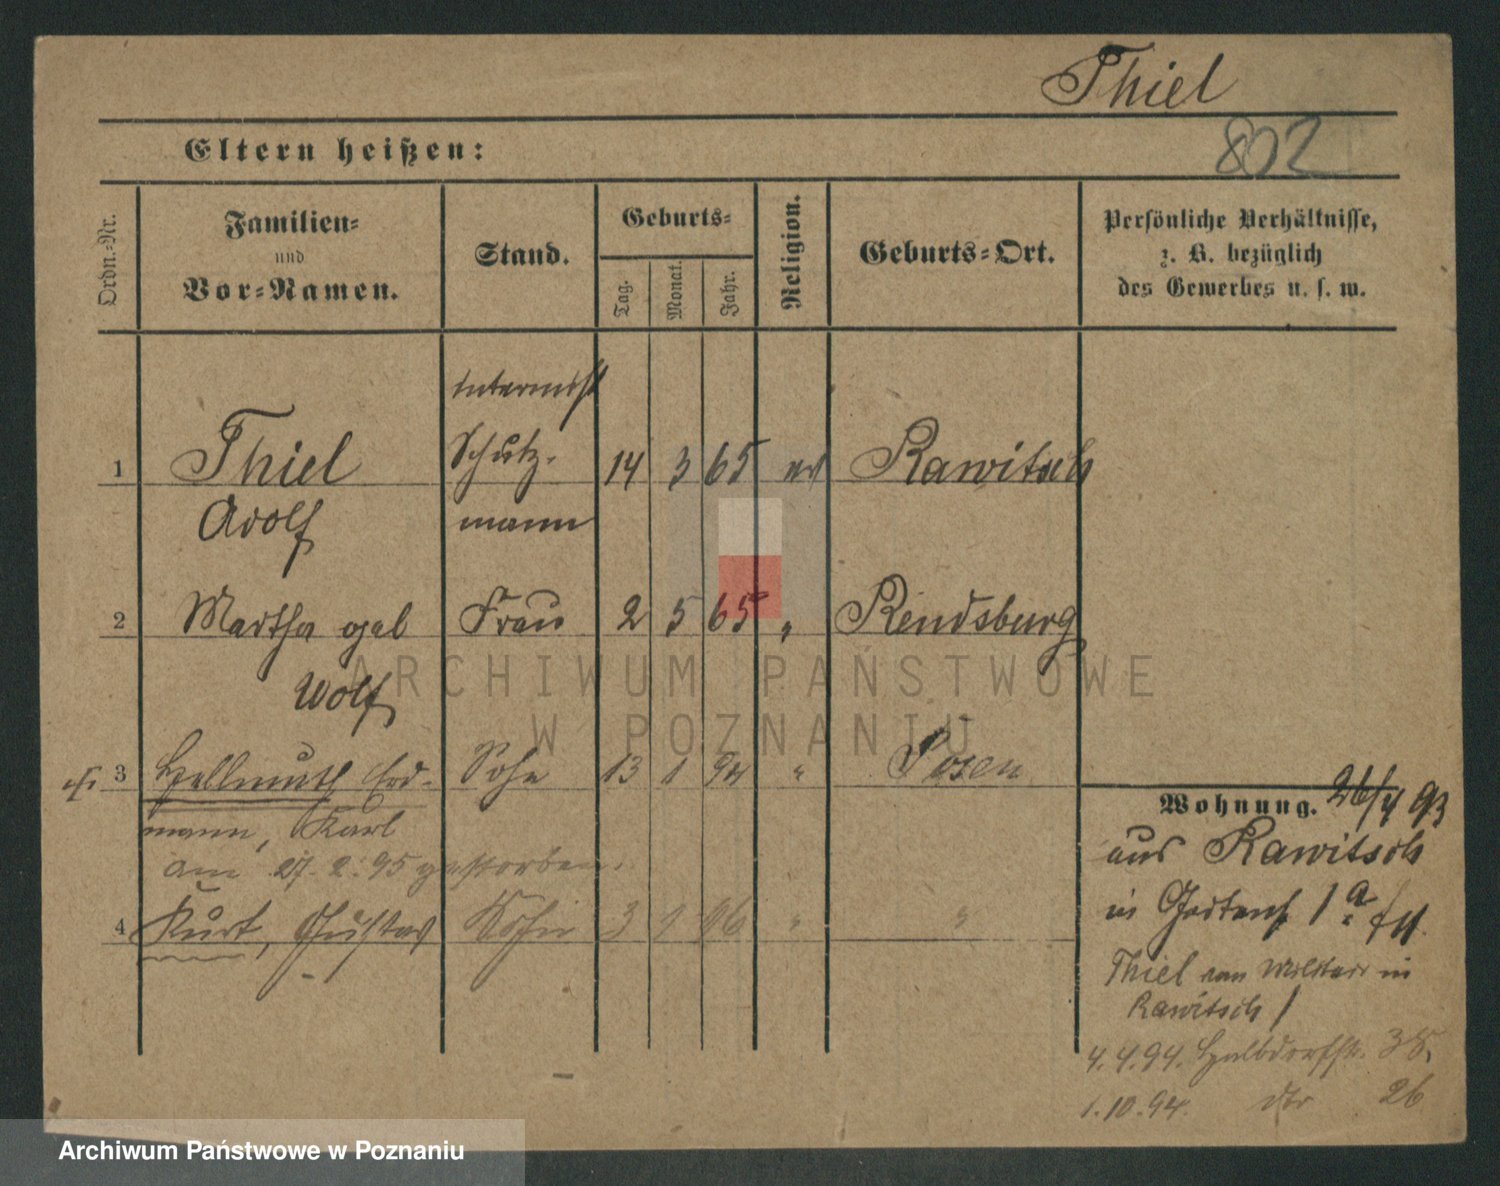 Thiel
802
Eltern heißen:
Ordn.=Nr.
Familien=
und
Vor=Namen.
Stand.
Geburts=
Tag.
Monat.
Jahr.
Religion.
Geburts=Ort.
Persönliche Verhältnisse,
z. B. bezüglich
des Gewerbes u. s. w.
intermist
1 Thiel Schutz- 14 3 65 ev Rawitsch
Adolf mann
2 Martha geb Frau 2 5 65 " Rendsburg
Wolf
3 Hellmuth Erd- Sohn 13 1 94 " Posen
mann, Karl
am 27. 2. 95 gestorben.
4 Kurt, Gustav Sohn 3 1 96 " "
Wohnung. 26/4 93
aus Rawitsch
in Gartenst 1a
Thiel vom Militair in
Rawitsch /
4. 4. 94. Halbdorfstr. 38,
1. 10. 94. dto 26
ARCHIWUM PAŃSTWOWE
W POZNANIU
Archiwum Państwowe w Poznaniu